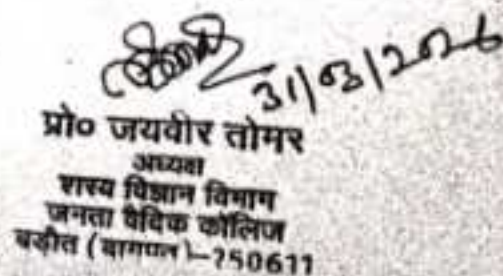 31/03/2026
प्रो० जयवीर तोमर
अध्यक्ष
शस्य विज्ञान विभाग
जनता वैदिक कॉलिज
बड़ौत (बागपत)-250611